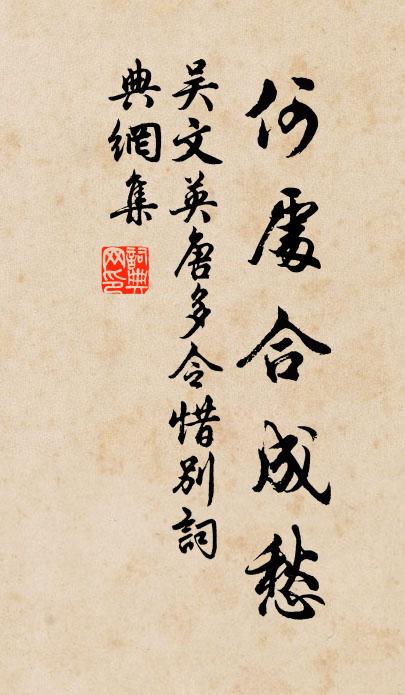 何處合成愁
吳文英唐多令惜別詞
典網集
詞典網印